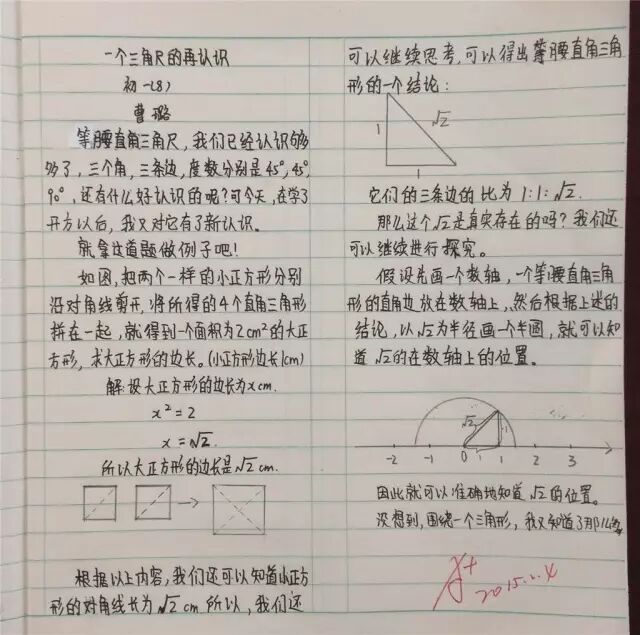 一个三角尺的再认识
初一(8)
曹璐
等腰直角三角尺，我们已经认识够
够了，三个角，三条边，度数分别是45°，45°，
90°，还有什么好认识的呢？可今天，在学了
开方以后，我又对它有了新认识。
就拿这道题做例子吧！
如图，把两个一样的小正方形分别
沿对角线剪开，将所得的4个直角三角形
拼在一起，就得到一个面积为2cm²的大正
方形，求大正方形的边长。(小正方形边长1cm)
解:设大正方形的边长为xcm.
x²=2
x=√2.
所以大正方形的边长是√2cm.
根据以上内容，我们还可以知道小正方
形的对角线长为√2cm 所以，我们还
可以继续思考，可以得出等腰直角三角
形的一个结论：
1
√2
1
它们的三条边的比为 1:1:√2.
那么这个√2是真实存在的吗？我们还
可以继续进行探究。
假设先画一个数轴，一个等腰直角三角
形的直角边放在数轴上，然后根据上述的
结论，以√2为半径画一个半圆，就可以知
道√2的在数轴上的位置。
√2
1
-2 -1 0 1 1 2 3
因此就可以准确地知道√2的位置。
没想到，围绕一个三角形，我又知道了那么多
A+